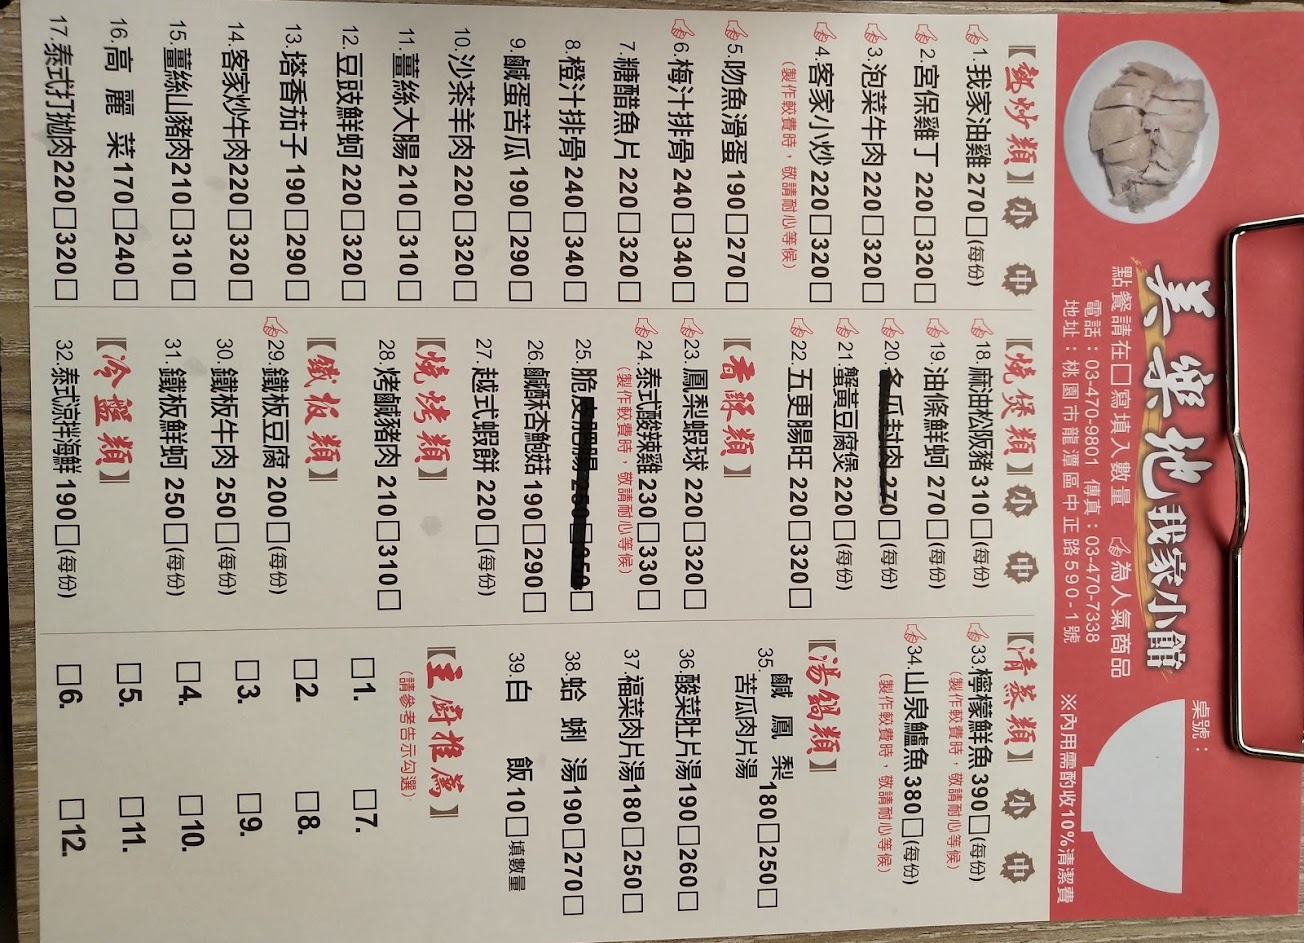 美樂地我家小館
點餐請在□寫填入數量 為人氣商品
電話：03-470-9801 傳真：03-470-7338
地址：桃園市龍潭區中正路590-1號
桌號：
※內用需酌收10%清潔費
【熱炒類】 小 中
1.我家油雞270□(每份)
2.宮保雞丁220□320□
3.泡菜牛肉220□320□
4.客家小炒220□320□
(製作較費時，敬請耐心等候)
5.吻魚滑蛋190□270□
6.梅汁排骨240□340□
7.糖醋魚片220□320□
8.橙汁排骨240□340□
9.鹹蛋苦瓜190□290□
10.沙茶羊肉220□320□
11.薑絲大腸210□310□
12.豆豉鮮蚵220□320□
13.塔香茄子190□290□
14.客家炒牛肉220□320□
15.薑絲山豬肉210□310□
16.高麗菜170□240□
17.泰式打拋肉220□320□
【燒煲類】 小 中
18.麻油松阪豬310□(每份)
19.油條鮮蚵270□(每份)
20.冬瓜封肉270□(每份)
21.蟹黃豆腐煲220□(每份)
22.五更腸旺220□320□
【香酥類】
23.鳳梨蝦球220□320□
24.泰式酸辣雞230□330□
(製作較費時，敬請耐心等候)
25.脆皮肥腸250□350□
26.鹹酥杏鮑菇190□290□
27.越式蝦餅220□(每份)
【燒烤類】
28.烤鹹豬肉210□310□
【鐵板類】
29.鐵板豆腐200□(每份)
30.鐵板牛肉250□(每份)
31.鐵板鮮蚵250□(每份)
【冷盤類】
32.泰式涼拌海鮮190□(每份)
【清蒸類】 小 中
33.檸檬鮮魚390□(每份)
(製作較費時，敬請耐心等候)
34.山泉鱸魚380□(每份)
(製作較費時，敬請耐心等候)
【湯鍋類】
35.鹹鳳梨苦瓜肉片湯180□250□
36.酸菜肚片湯190□260□
37.福菜肉片湯180□250□
38.蛤蜊湯190□270□
39.白飯10□填數量
【主廚推薦】
(請參考告示勾選)
□1. □7.
□2. □8.
□3. □9.
□4. □10.
□5. □11.
□6. □12.